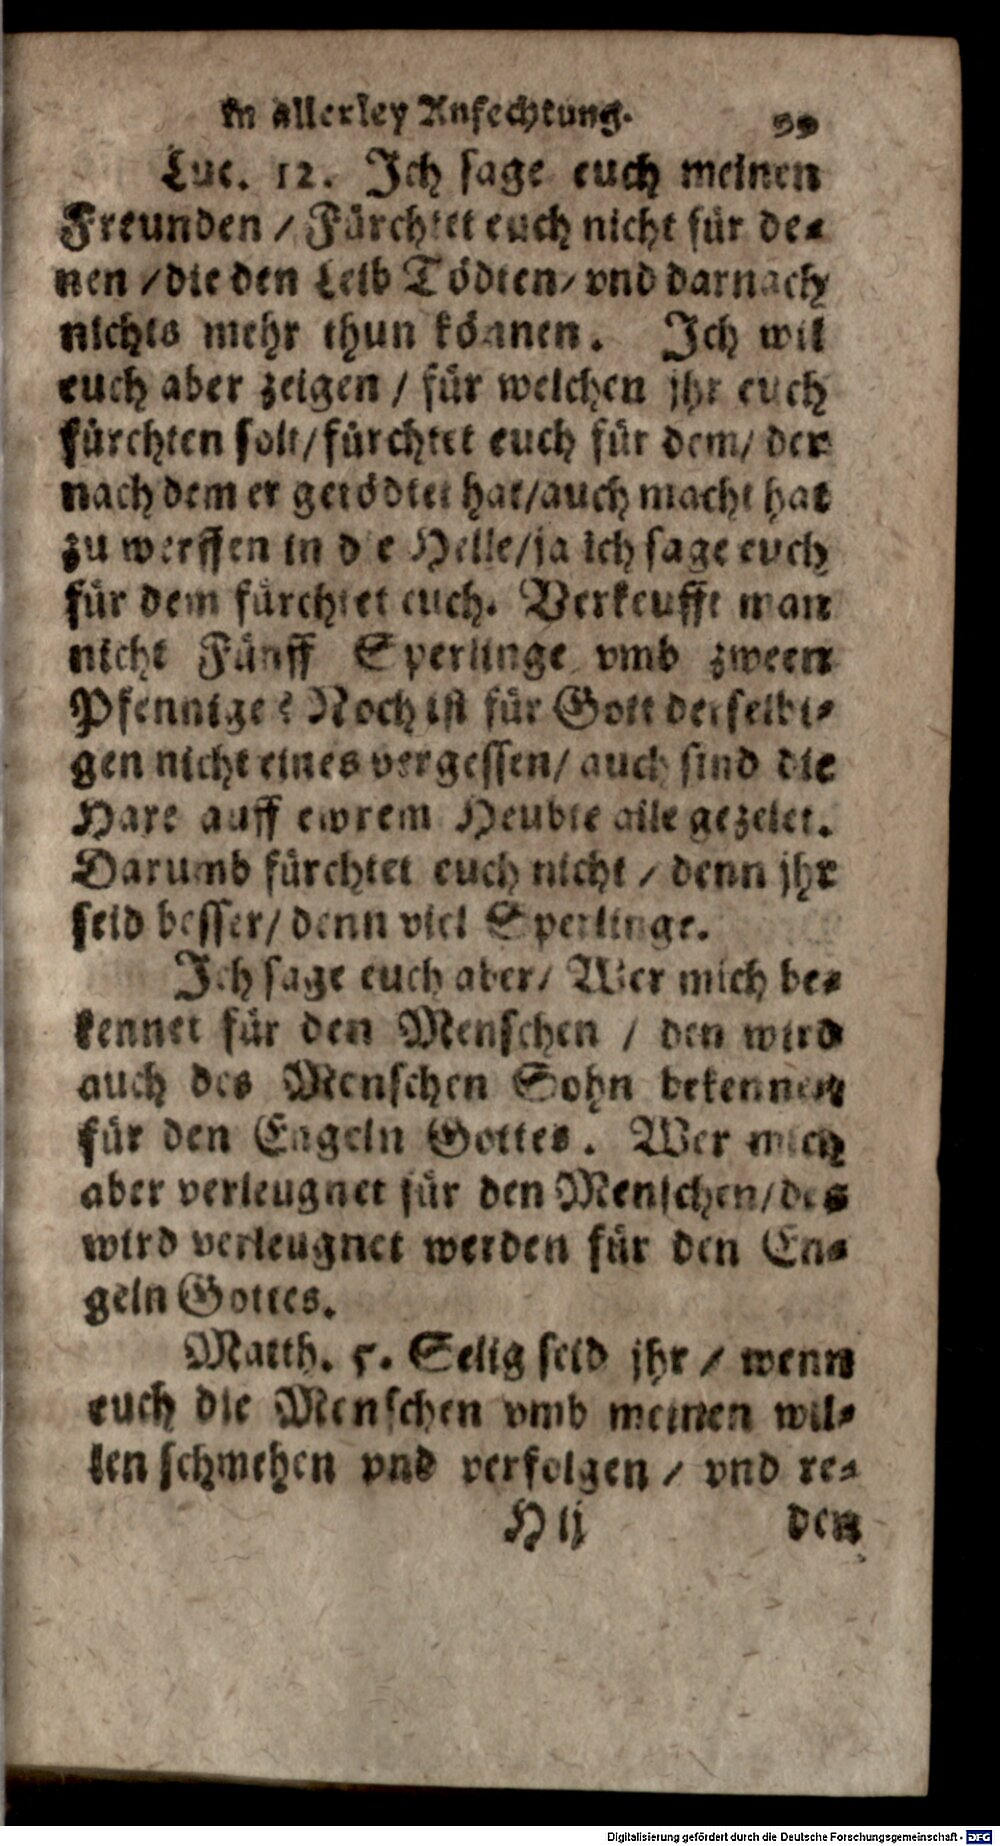 in allerley Anfechtung. 59
Luc. 12. Ich sage euch meinen
Freunden / Fürchtet euch nicht für de-
nen / die den Leib Tödten / vnd darnach
nichts mehr thun können. Ich wil
euch aber zeigen / für welchen jhr euch
fürchten solt / fürchtet euch für dem / der
nach dem er getödtet hat / auch macht hat
zu werffen in die Helle / ja ich sage euch
für dem fürchtet euch. Verkeufft man
nicht Fünff Sperlinge vmb zween
Pfennige? Noch ist für Gott derselbi-
gen nicht eines vergessen / auch sind die
Hare auff ewrem Heubte alle gezelet.
Darumb fürchtet euch nicht / denn jhr
seid besser / denn viel Sperlinge.
Ich sage euch aber / Wer mich be-
kennet für den Menschen / den wird
auch des Menschen Sohn bekennen
für den Engeln Gottes. Wer mich
aber verleugnet für den Menschen / des
wird verleugnet werden für den En-
geln Gottes.
Matth. 5. Selig seid jhr / wenn
euch die Menschen vmb meinen wil-
len schmehen vnd verfolgen / vnd re-
H ij den
Digitalisierung gefördert durch die Deutsche Forschungsgemeinschaft - DFG